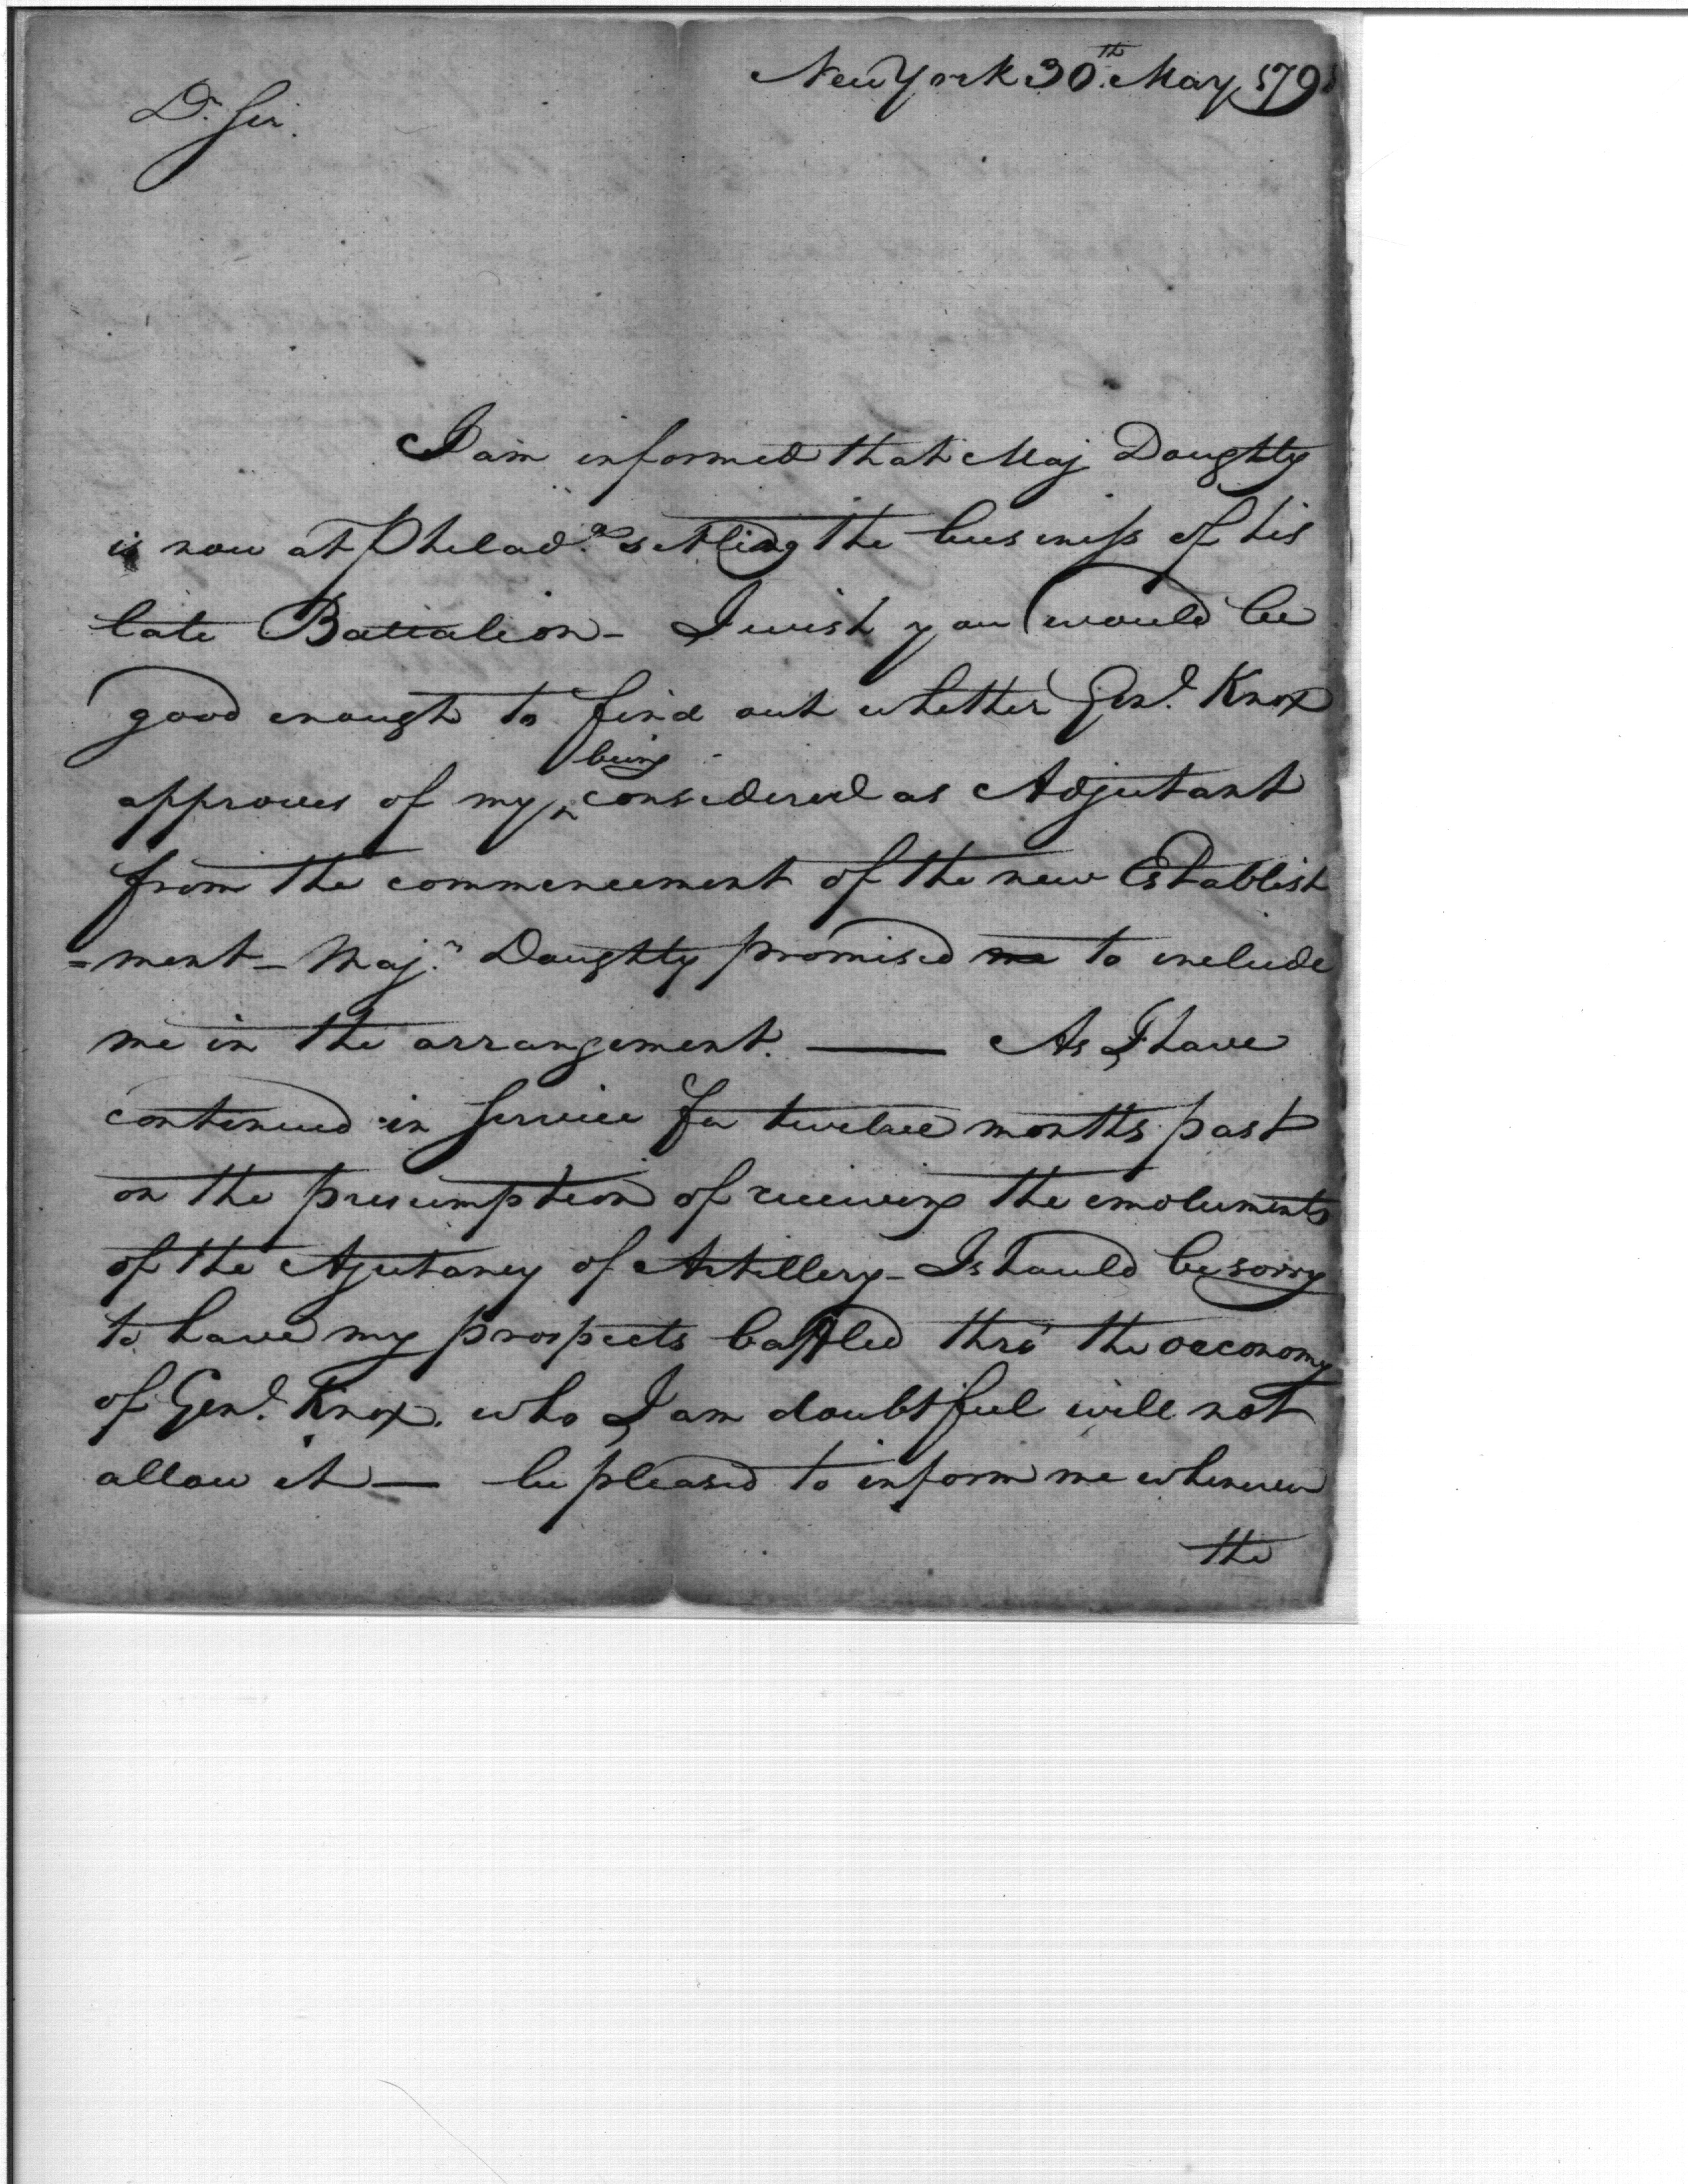 New York 30th. May, 179
Dr. Sir.
I am informed that Maj Doughty
is now at Philada. settling the business of his
late Battalion - I wish you would be
good enough to find out whether Genl. Knox
being
approves of my ^ considered as Adjutant
from the commencement of the new Establish
=ment - Majr. Doughty promised me to include
me in the arrangement. — As I have
continued in Service for twelve months past
on the presumption of receiving the emoluments
of the Ajutancy of Artillery - I should be sorry
to have my prospects baffled thro' the oeconomy
of Genl. Knox. who I am doubtful will not
allow it — be pleased to inform me whenever
the